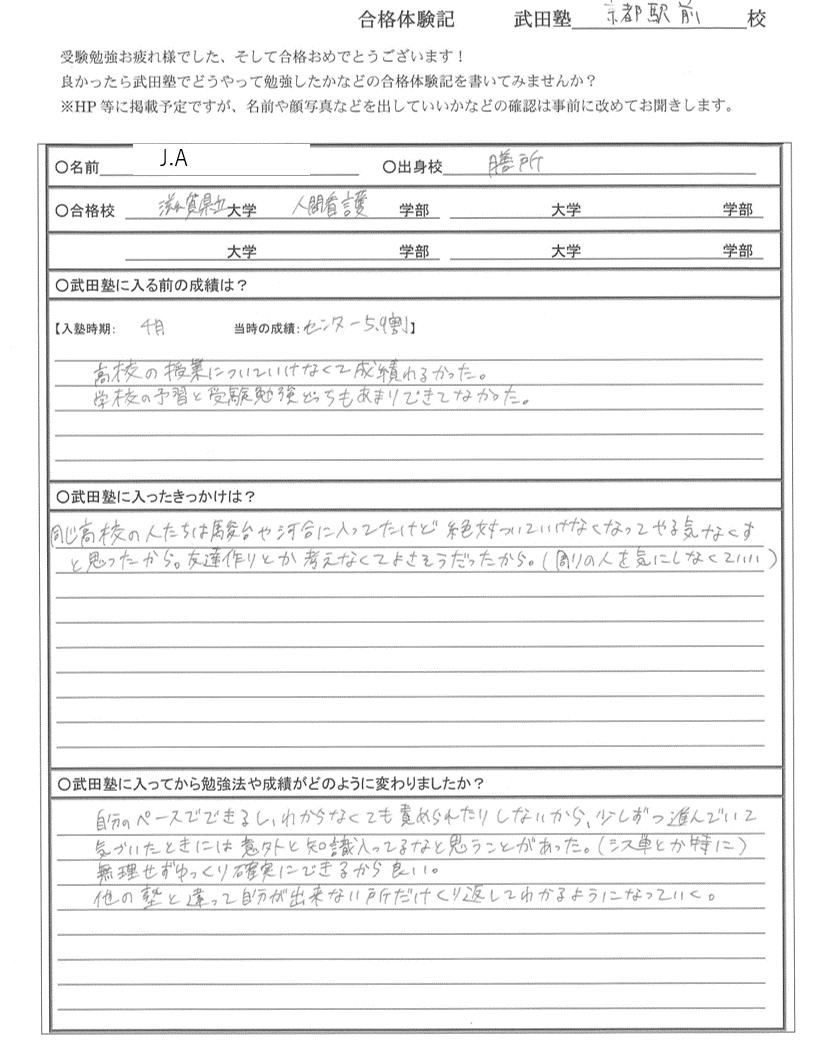 合格体験記 武田塾 京都駅前 校
受験勉強お疲れ様でした、そして合格おめでとうございます！
良かったら武田塾でどうやって勉強したかなどの合格体験記を書いてみませんか？
※HP 等に掲載予定ですが、名前や顔写真などを出していいかなどの確認は事前に改めてお聞きします。
〇名前 J.A 〇出身校 膳所
〇合格校 滋賀県立 大学 人間看護 学部 大学 学部
大学 学部 大学 学部
〇武田塾に入る前の成績は？
【入塾時期： 4月 当時の成績：センター5.9割】
高校の授業についていけなくて成績わるかった。
学校の予習と受験勉強どっちもあまりできてなかった。
〇武田塾に入ったきっかけは？
同じ高校の人たちは駿台や河合に入ってたけど絶対ついていけなくなってやる気なくす
と思ったから。友達作りとか考えなくてよさそうだったから。(周りの人を気にしなくていい)
〇武田塾に入ってから勉強法や成績がどのように変わりましたか？
自分のペースでできるし、わからなくても責められたりしないから、少しずつ進んでいて
気づいたときには意外と知識入ってるなと思うことがあった。(シス単とか特に)
無理せずゆっくり確実にできるから良い。
他の塾と違って自分が出来ない所だけくり返してわかるようになっていく。